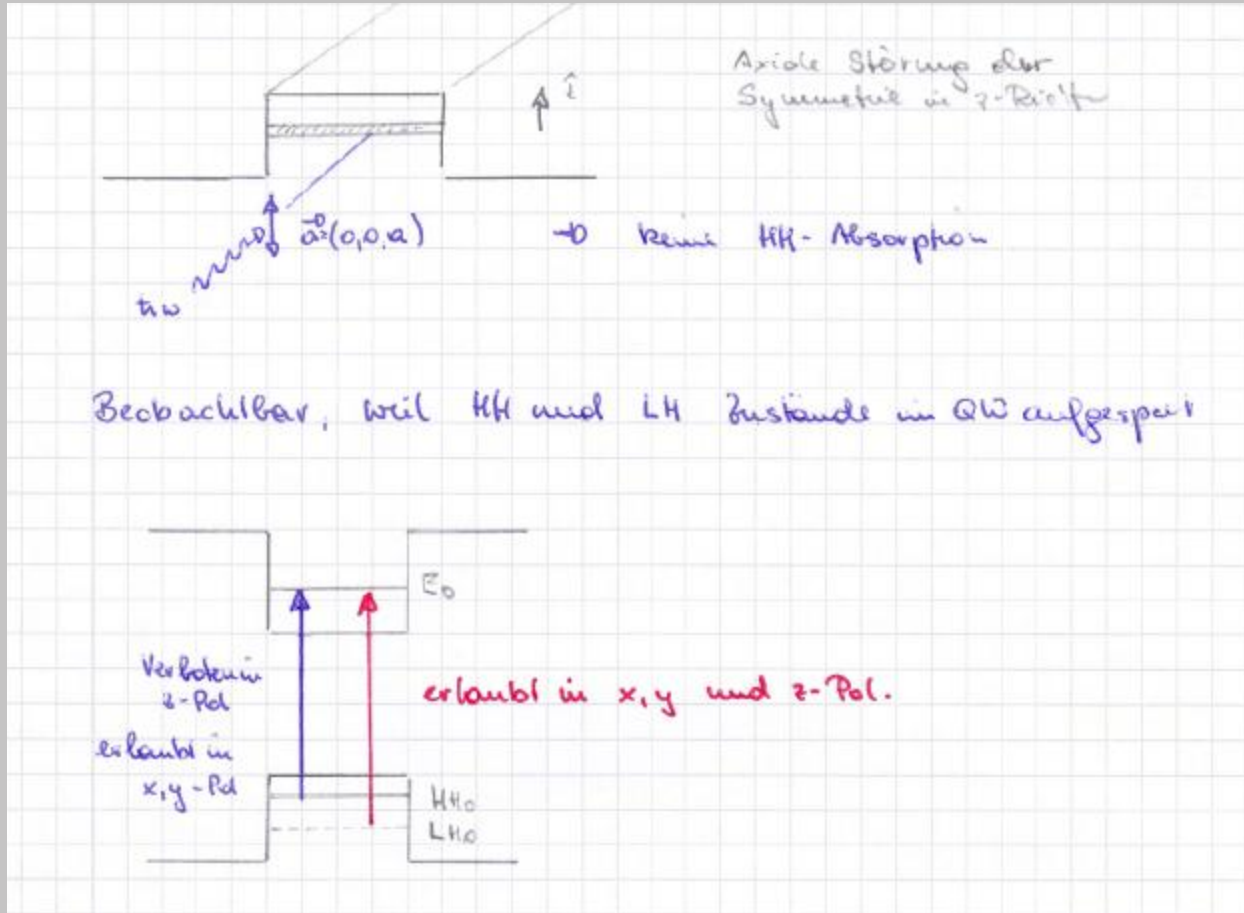 Axiale Störung der
Symmetrie in z-Richtg
ẑ
a⃗=(0,0,a) → keine HH-Absorption
ħω
Beobachtbar, weil HH und LH Zustände im QW aufgespalt
E₀
Verboten in
z-Pol
erlaubt in x, y und z-Pol.
erlaubt in
x,y-Pol
HH₀
LH₀